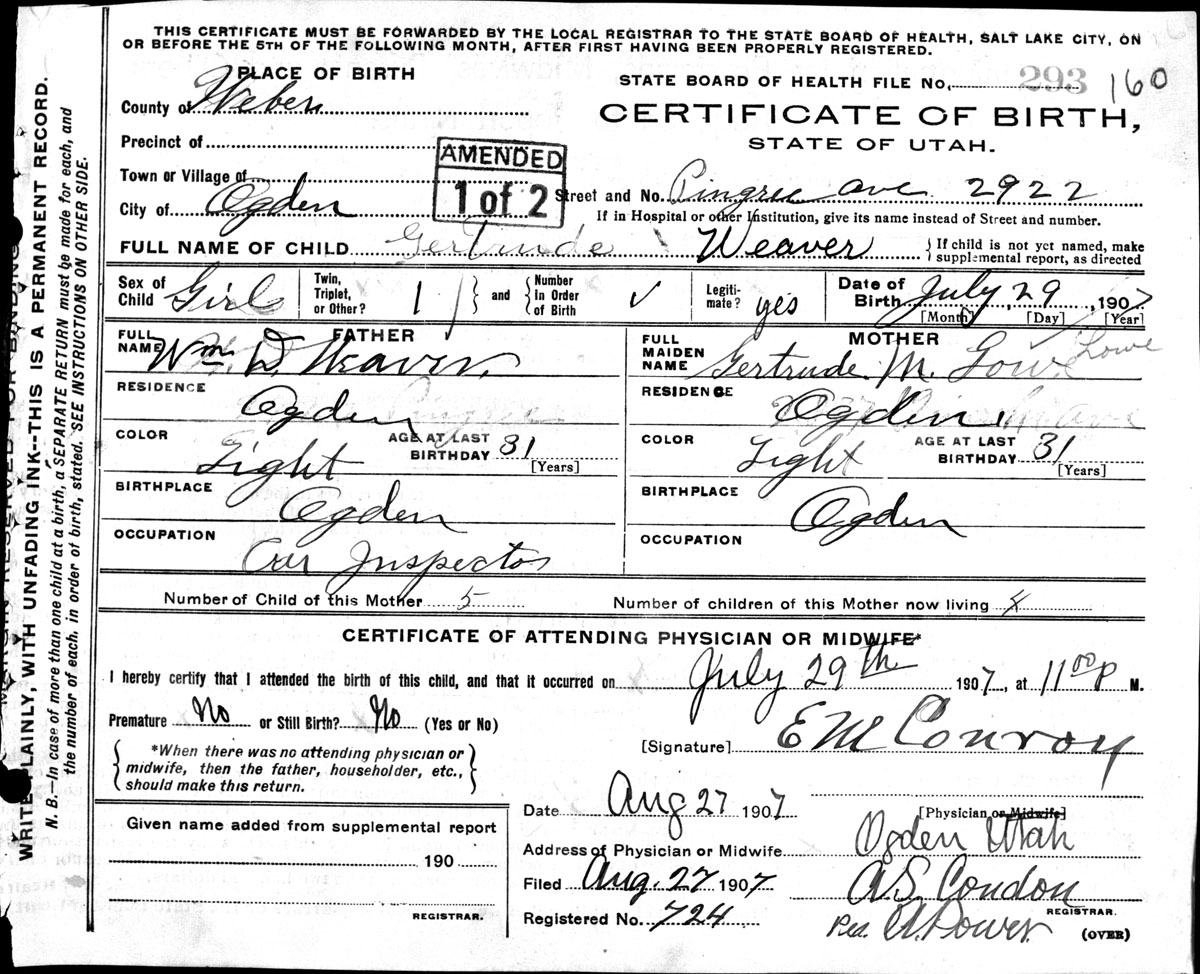 THIS CERTIFICATE MUST BE FORWARDED BY THE LOCAL REGISTRAR TO THE STATE BOARD OF HEALTH, SALT LAKE CITY, ON
OR BEFORE THE 5TH OF THE FOLLOWING MONTH, AFTER FIRST HAVING BEEN PROPERLY REGISTERED.
PLACE OF BIRTH
STATE BOARD OF HEALTH FILE No. 293 160
County of Weber
CERTIFICATE OF BIRTH,
STATE OF UTAH.
Precinct of
AMENDED
1 of 2
Town or Village of
Street and No. Pingree ave 2922
City of Ogden
If in Hospital or other Institution, give its name instead of Street and number.
FULL NAME OF CHILD Gertrude Weaver { If child is not yet named, make supplemental report, as directed
Sex of Child Girl Twin, Triplet, or Other? 1 } and { Number In Order of Birth ✓ Legiti-mate? yes Date of Birth July 29, 1907
[Month] [Day] [Year]
FATHER
FULL NAME Wm. D. Weaver
RESIDENCE Ogden
COLOR Light AGE AT LAST BIRTHDAY 31 [Years]
BIRTHPLACE Ogden
OCCUPATION Car Inspector
MOTHER
FULL MAIDEN NAME Gertrude M. Lowe Lowe
RESIDENCE Ogden
COLOR Light AGE AT LAST BIRTHDAY 31 [Years]
BIRTHPLACE Ogden
OCCUPATION
Number of Child of this Mother 5 Number of children of this Mother now living
CERTIFICATE OF ATTENDING PHYSICIAN OR MIDWIFE*
I hereby certify that I attended the birth of this child, and that it occurred on July 29th 1907, at 11 00 P M.
Premature No or Still Birth? No (Yes or No)
*When there was no attending physician or
midwife, then the father, householder, etc.,
should make this return.
[Signature] E M Conroy
[Physician or Midwife]
Date Aug 27 1907
Address of Physician or Midwife Ogden Utah
Filed Aug. 27 1907 A.S. Condon
REGISTRAR.
Registered No. 724
(OVER)
Given name added from supplemental report
190
REGISTRAR.
WRITE PLAINLY, WITH UNFADING INK--THIS IS A PERMANENT RECORD.
N. B.—In case of more than one child at a birth, a SEPARATE RETURN must be made for each, and
the number of each, in order of birth, stated. SEE INSTRUCTIONS ON OTHER SIDE.